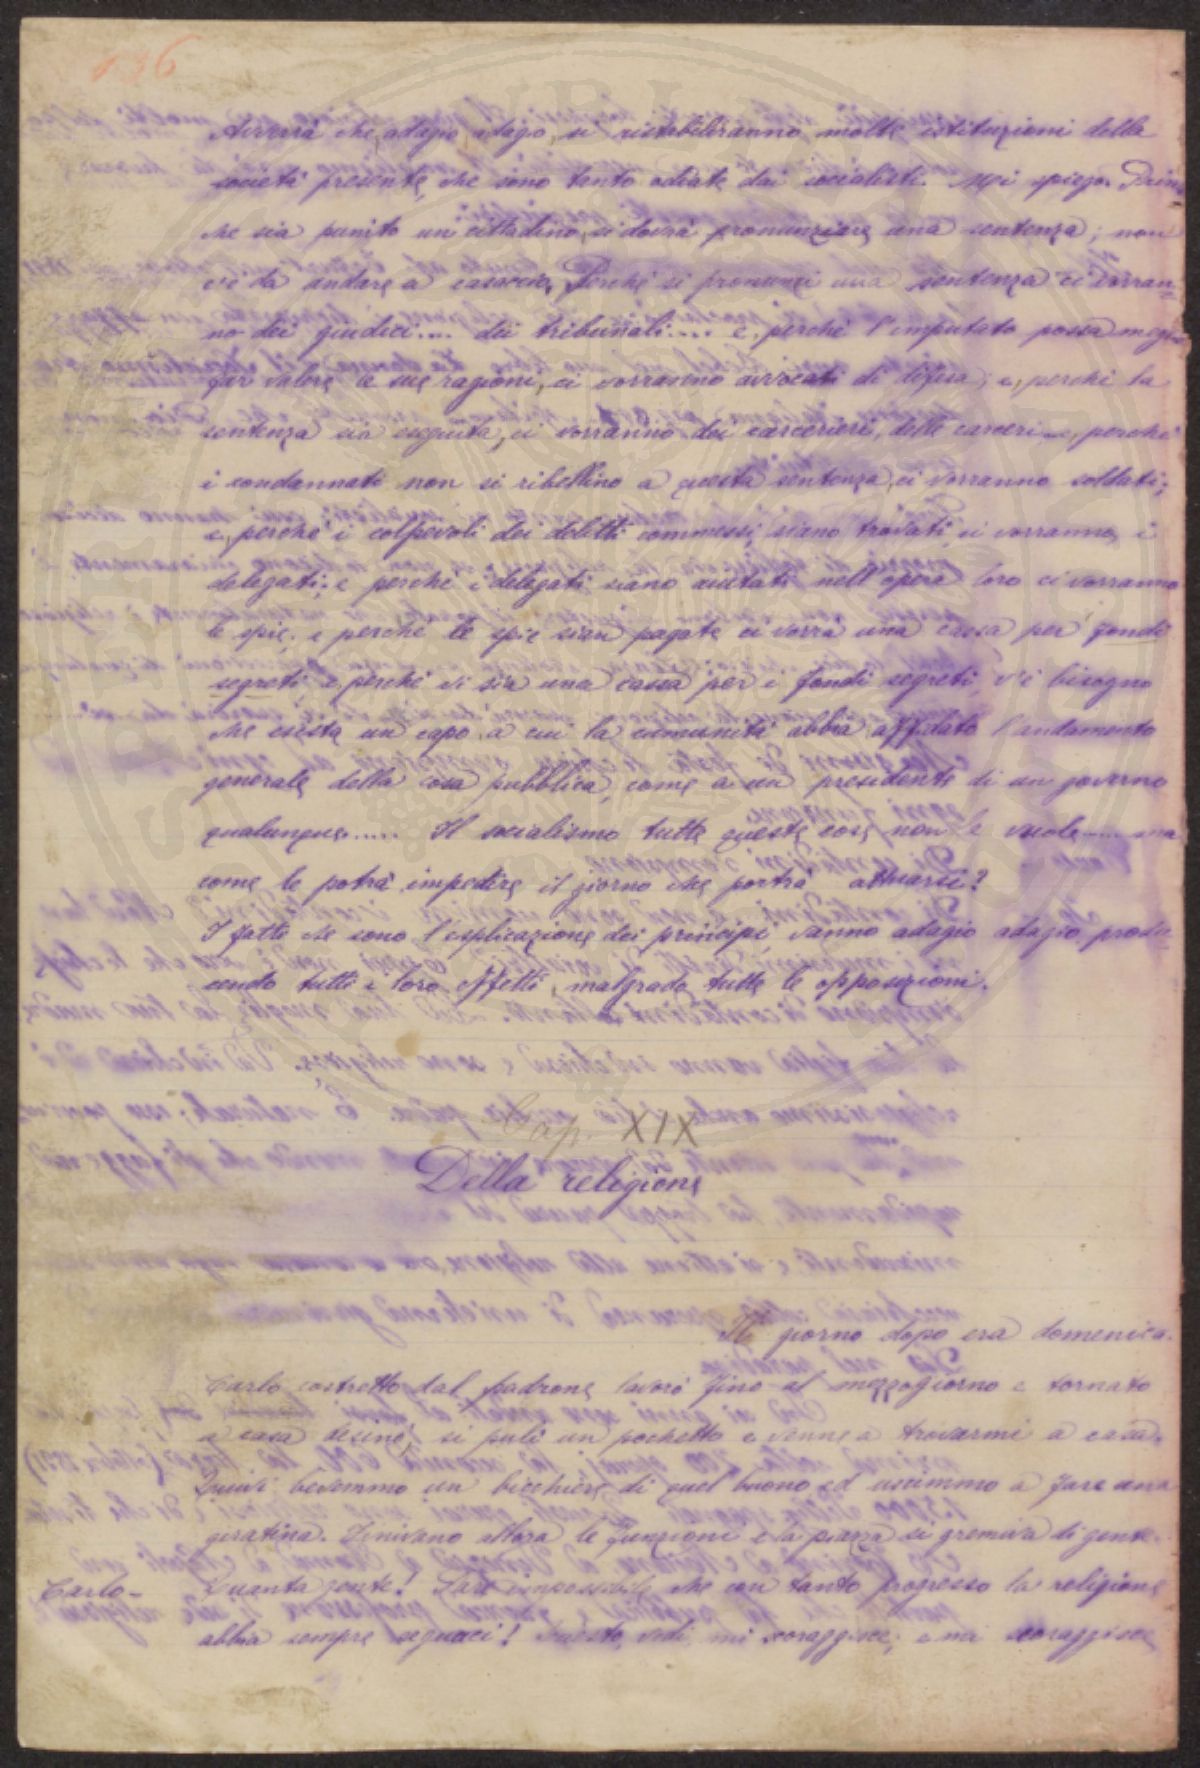 136
Avverrà che, adagio adagio, si ristabiliranno molte istituzioni della
società presente, che sono tanto odiate dai socialisti. Mi spiego. Prima
che sia punito un cittadino, si dovrà pronunziare una sentenza; non
v'è da andare a casaccio. Perché si pronunzi una sentenza ci vorran-
no dei giudici.... dei tribunali.... e, perché l'imputato possa meglio
far valere le sue ragioni, ci vorranno avvocati di difesa; e, perché la
sentenza sia eseguita, ci vorranno dei carcerieri, delle carceri e, perché
i condannati non si ribellino a questa sentenza, ci vorranno soldati;
e, perché i colpevoli dei delitti commessi, siano trovati, ci vorranno i
delegati; e perché i delegati siano aiutati nell'opera loro ci vorranno
le spie; e perché le spie sian pagate ci vorrà una cassa per fondi
segreti, e perché vi sia una cassa per i fondi segreti, v'è bisogno
che esista un capo a cui la comunità abbia affidato l'andamento
generale della cosa pubblica, come a un presidente di un governo
qualunque..... Il socialismo tutte queste cose non le vuole.... ma
come le potrà impedire il giorno che potrà attuarsi?
I fatti che sono l'esplicazione dei principi vanno adagio adagio produ-
cendo tutti i loro effetti, malgrado tutte le opposizioni.
Cap. XIX
Della religione
Il giorno dopo era domenica.
Carlo costretto dal padrone lavorò fino al mezzogiorno e tornato
a casa desinò, si pulì un pochetto e venne a trovarmi a casa.
Quivi bevemmo un bicchiere di quel buono ed uscimmo a fare una
giratina. Finivano allora le funzioni e la piazza si gremiva di gente.
Carlo- Quanta gente! Pare impossibile che con tanto progresso la religione
abbia sempre seguaci! Questo, vedi, mi scoraggisce; e mi scoraggisce